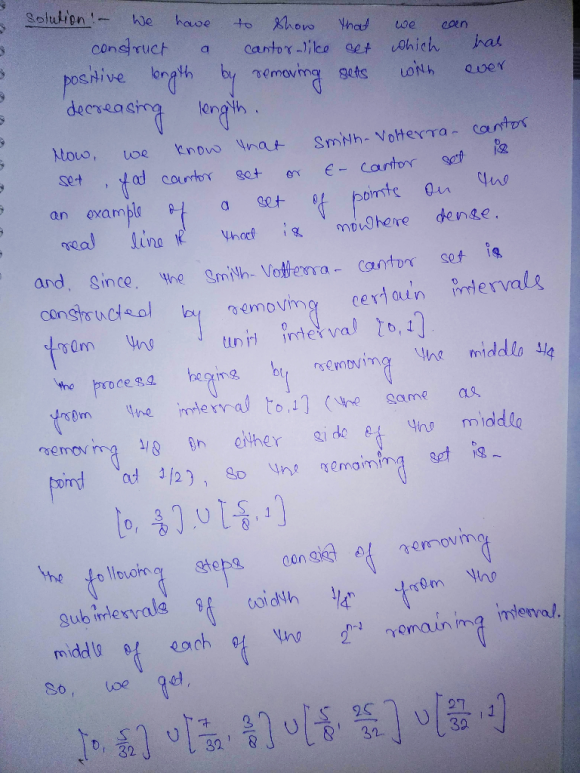 Solution:- We have to show that we can
construct a cantor-like set which has
positive length by removing sets with ever
decreasing length.
Now, we know that Smith-Volterra-cantor
set, fat cantor set or ε-cantor set is
an example of a set of points on the
real line R that is nowhere dense.
and, since, the Smith-Volterra-cantor set is
constructed by removing certain intervals
from the unit interval [0,1].
The process begins by removing the middle 1/4
from the interval [0,1] (the same as
removing 1/8 on either side of the middle
point at 1/2), so the remaining set is-
[0, 3/8] ∪ [5/8, 1]
The following steps consist of removing
subintervals of width 1/4ⁿ from the
middle of each of the 2ⁿ⁻¹ remaining interval.
So, we get,
[0, 5/32] ∪ [7/32, 3/8] ∪ [5/8, 25/32] ∪ [27/32, 1]